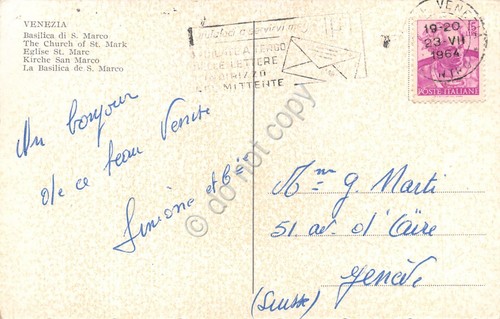 VENEZIA
Basilica di S. Marco
The Church of St. Mark
Eglise St. Marc
Kirche San Marco
La Basilica de S. Marco
A TERGO
LETTERE
MITTENTE
VENE
19-20
23-VII
1964
POSTE ITALIANE
Un bonjour
de ce beau Venise
Simone et Cie
Mme G. Marti
51 av. d'Aïre
Genève
(Suisse)
do not copy